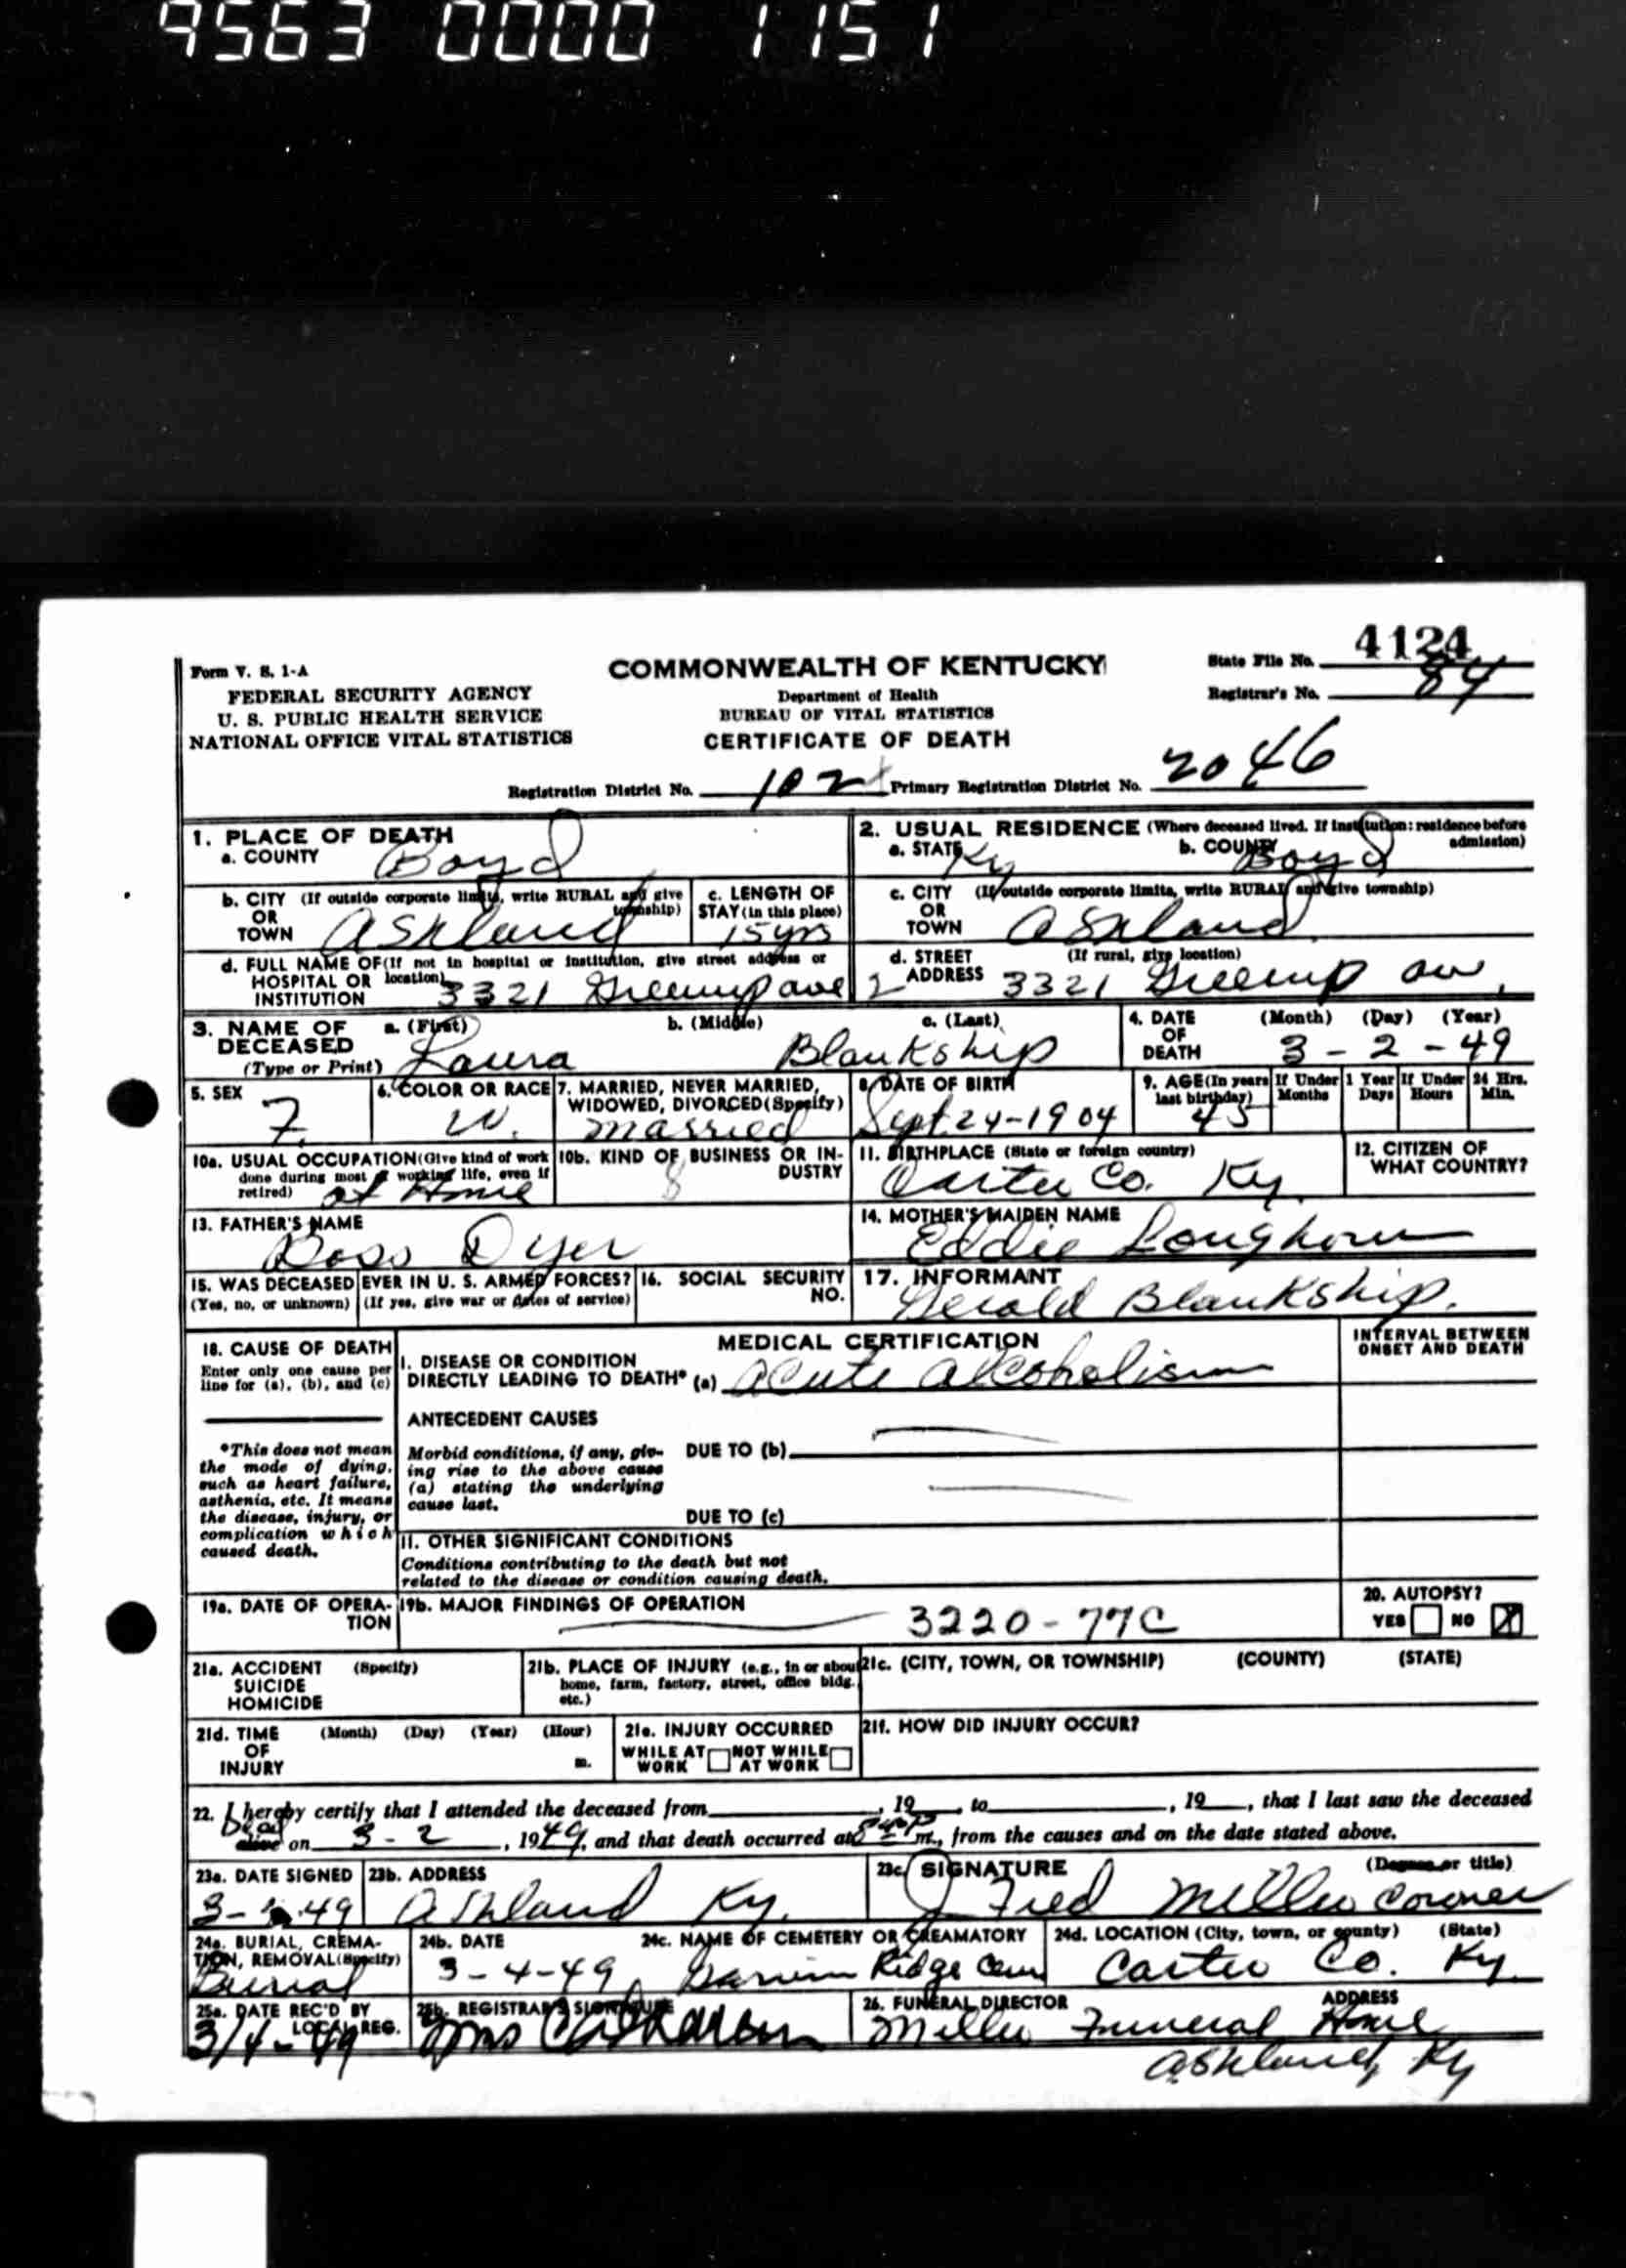 9563 0000 1151
4124
Form V. S. 1-A
COMMONWEALTH OF KENTUCKY
State File No.
FEDERAL SECURITY AGENCY
Department of Health
Registrar's No. 84
U. S. PUBLIC HEALTH SERVICE
BUREAU OF VITAL STATISTICS
NATIONAL OFFICE VITAL STATISTICS
CERTIFICATE OF DEATH
Registration District No. 102 Primary Registration District No. 2046
1. PLACE OF DEATH
a. COUNTY Boyd
2. USUAL RESIDENCE (Where deceased lived. If institution: residence before admission)
a. STATE Ky b. COUNTY Boyd
b. CITY (If outside corporate limits, write RURAL and give township)
OR
TOWN Ashland
c. LENGTH OF
STAY (in this place)
15 yrs
c. CITY (If outside corporate limits, write RURAL and give township)
OR
TOWN Ashland
d. FULL NAME OF (If not in hospital or institution, give street address or location)
HOSPITAL OR
INSTITUTION 3321 Greenup ave
d. STREET (If rural, give location)
ADDRESS 3321 Greenup av
3. NAME OF DECEASED
(Type or Print)
a. (First) b. (Middle) c. (Last)
Laura Blankship
4. DATE OF DEATH (Month) (Day) (Year)
3 - 2 - 49
5. SEX
F.
6. COLOR OR RACE
W.
7. MARRIED, NEVER MARRIED,
WIDOWED, DIVORCED (Specify)
married
8. DATE OF BIRTH
Sept. 24-1904
9. AGE (In years last birthday)
45
If Under 1 Year
Months Days
If Under 24 Hrs.
Hours Min.
10a. USUAL OCCUPATION (Give kind of work done during most of working life, even if retired)
at Home
10b. KIND OF BUSINESS OR INDUSTRY
11. BIRTHPLACE (State or foreign country)
Carter Co. Ky.
12. CITIZEN OF WHAT COUNTRY?
13. FATHER'S NAME
Doss Dyer
14. MOTHER'S MAIDEN NAME
Eddie
15. WAS DECEASED EVER IN U. S. ARMED FORCES?
(Yes, no, or unknown) (If yes, give war or dates of service)
16. SOCIAL SECURITY NO.
17. INFORMANT
Gerald Blankship.
18. CAUSE OF DEATH
Enter only one cause per
line for (a), (b), and (c)
MEDICAL CERTIFICATION
INTERVAL BETWEEN
ONSET AND DEATH
I. DISEASE OR CONDITION
DIRECTLY LEADING TO DEATH* (a) acute alcoholism
ANTECEDENT CAUSES
*This does not mean
the mode of dying,
such as heart failure,
asthenia, etc. It means
the disease, injury, or
complication which
caused death.
Morbid conditions, if any, giv-
ing rise to the above cause
(a) stating the underlying
cause last.
DUE TO (b)
DUE TO (c)
II. OTHER SIGNIFICANT CONDITIONS
Conditions contributing to the death but not
related to the disease or condition causing death.
19a. DATE OF OPERA-
TION
19b. MAJOR FINDINGS OF OPERATION
3220-77C
20. AUTOPSY?
YES NO X
21a. ACCIDENT (Specify)
SUICIDE
HOMICIDE
21b. PLACE OF INJURY (e.g., in or about
home, farm, factory, street, office bldg.
etc.)
21c. (CITY, TOWN, OR TOWNSHIP) (COUNTY) (STATE)
21d. TIME (Month) (Day) (Year) (Hour)
OF
INJURY m.
21e. INJURY OCCURRED
WHILE AT NOT WHILE
WORK AT WORK
21f. HOW DID INJURY OCCUR?
22. I hereby certify that I attended the deceased from , 19 , to , 19 , that I last saw the deceased
Dead
alive on 3-2, 1949, and that death occurred at m., from the causes and on the date stated above.
23a. DATE SIGNED
3- -49
23b. ADDRESS
Ashland Ky.
23c. SIGNATURE (Degree or title)
J Fred Miller Coroner
24a. BURIAL, CREMA-
TION, REMOVAL (Specify)
Burial
24b. DATE
3-4-49
24c. NAME OF CEMETERY OR CREAMATORY
Ridge Cem
24d. LOCATION (City, town, or county) (State)
Carter Co. Ky.
25a. DATE REC'D BY
LOCAL REG.
3/4-49
25b. REGISTRAR'S SIGNATURE
26. FUNERAL DIRECTOR ADDRESS
Miller Funeral Home
Ashland, Ky